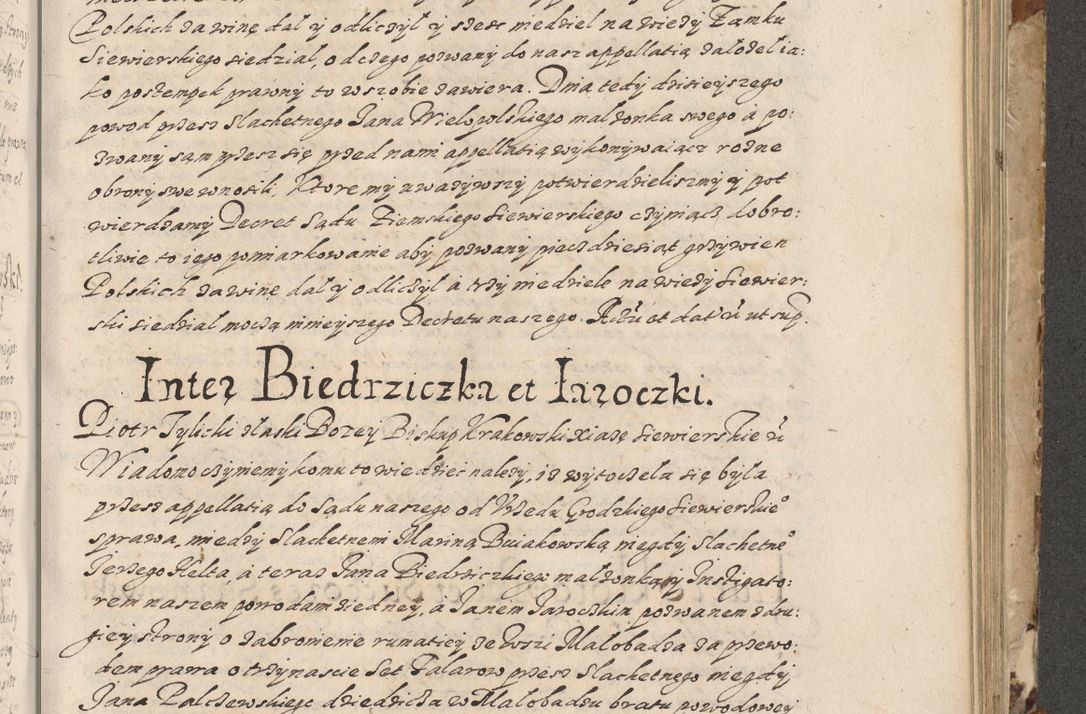 Polskich za winę dał y odliczył y szesc niedziel na wiezy Zamku
Siewierskiego siedział, od czego pozwany do nas appellatią założel ia:
ko postempek prawny to w szobie zawiera. Dnia tedy dzisieyszego
powod przesz slachetnego Jana Wielopolskiego małzonka swego a po:
zwany sam przesz się przed nami appellatią wykonywaiącz rozne
obrony swe wnosili, Ktore my uwazywszy potwierdzieliszmy y pot
wierdzamy Decret Sądu Ziemskiego Siewierskiego czyniącz dobro:
tliwie to iego pomiarkowanie aby pozwany piecdziesiąt grzywien
Polskich za winę dał y odliczył a trzy niedziele na wiezy Siewier:
ski siedział moczą ninieyszego Decretu naszego. Actū et datū ut sup.
Inter Biedrziczka et Iaroczki.
Piotr Tylicki z łaski Bozey Biskup Krakowski Xiąze Siewierskie ū
Wiadomo czyniemy komu to wiedziec nalezy, iz wytoczela się była
przesz appellatią do Sądu naszego od Urzedu Grodzkiego Siewierskie°
sprawa, miedzy Slachetnem Marina Bviakowską niegdy Slachetne°
Jerzego Kelta, a teraz Jana Biedrziczkiego małzonką y Instigato:
rem naszem powodam z iedney, a Janem Jaroczkim pozwanem z dru:
giey strony o zabronienie rumatiey ze wszi Malobadza za przewo:
dem prawa o trzynascie Set Talarow przesz Slachetnego niegdy
Jana Palczewskiego dziedzicza w Malobadzu bratu powodowey